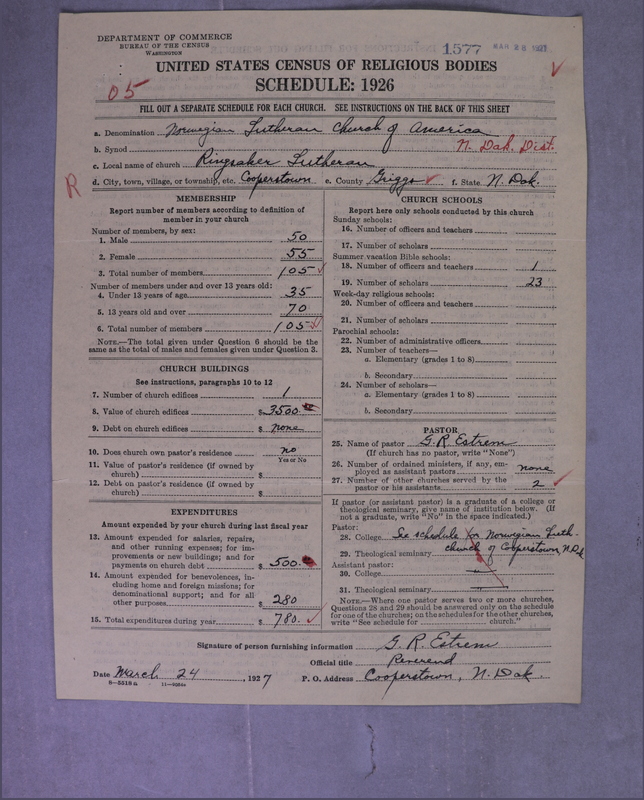 DEPARTMENT OF COMMERCE
BUREAU OF THE CENSUS
WASHINGTON
1577 MAR 26 1927
UNITED STATES CENSUS OF RELIGIOUS BODIES
SCHEDULE: 1926
05
FILL OUT A SEPARATE SCHEDULE FOR EACH CHURCH. SEE INSTRUCTIONS ON THE BACK OF THIS SHEET
a. Denomination Norwegian Lutheran Church of America
b. Synod N. Dak. Dist.
c. Local name of church Ringsaker Lutheran
R
d. City, town, village, or township, etc. Cooperstown e. County Griggs f. State N. Dak.
MEMBERSHIP
Report number of members according to definition of
member in your church
Number of members, by sex:
1. Male 50
2. Female 55
3. Total number of members 105
Number of members under and over 13 years old:
4. Under 13 years of age 35
5. 13 years old and over 70
6. Total number of members 105
NOTE.—The total given under Question 6 should be the
same as the total of males and females given under Question 3.
CHURCH BUILDINGS
See instructions, paragraphs 10 to 12
7. Number of church edifices 1
8. Value of church edifices $3500
9. Debt on church edifices $ none
10. Does church own pastor's residence no
Yes or No
11. Value of pastor's residence (if owned by
church) $
12. Debt on pastor's residence (if owned by
church) $
EXPENDITURES
Amount expended by your church during last fiscal year
13. Amount expended for salaries, repairs,
and other running expenses; for im-
provements or new buildings; and for
payments on church debt $ 500.
14. Amount expended for benevolences, in-
cluding home and foreign missions; for
denominational support; and for all
other purposes $ 280
15. Total expenditures during year $ 780.
CHURCH SCHOOLS
Report here only schools conducted by this church
Sunday schools:
16. Number of officers and teachers
17. Number of scholars
Summer vacation Bible schools:
18. Number of officers and teachers 1
19. Number of scholars 23
Week-day religious schools:
20. Number of officers and teachers
21. Number of scholars
Parochial schools:
22. Number of administrative officers
23. Number of teachers—
a. Elementary (grades 1 to 8)
b. Secondary
24. Number of scholars—
a. Elementary (grades 1 to 8)
b. Secondary
PASTOR
25. Name of pastor G. R. Estrem
(If church has no pastor, write "None")
26. Number of ordained ministers, if any, em-
ployed as assistant pastors none
27. Number of other churches served by the
pastor or his assistants 2
If pastor (or assistant pastor) is a graduate of a college or
theological seminary, give name of institution below. (If
not a graduate, write "No" in the space indicated.)
Pastor:
28. College See schedule for Norwegian Luth.
29. Theological seminary church of Cooperstown, N. Dak
Assistant pastor:
30. College
31. Theological seminary
NOTE.—Where one pastor serves two or more churches,
Questions 28 and 29 should be answered only on the schedule
for one of the churches; on the schedules for the other churches,
write "See schedule for church."
Signature of person furnishing information G. R. Estrem
Official title Reverend
Date March 24, 1927 P. O. Address Cooperstown, N. Dak.